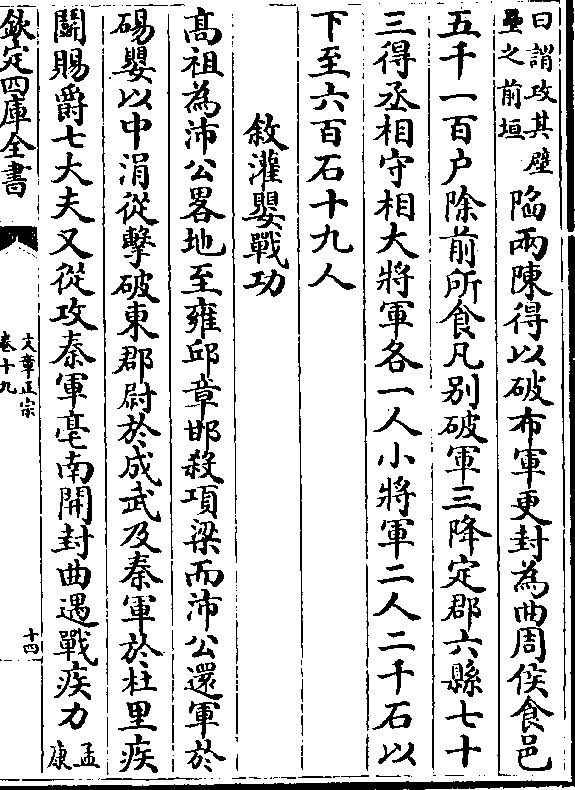 曰謂攻其壁
壘之前垣
陷兩陳得以破布軍更封為曲周侯食邑
五千一百户除前所食凡别破軍三降定郡六縣七十
三得丞相守相大將軍各一人小將軍二人二千石以
下至六百石十九人
敘灌嬰戰功
髙祖為沛公畧地至雍邱章邯殺項梁而沛公還軍於
碭嬰以中涓從擊破東郡尉於成武及秦軍於杜里疾
鬬賜爵七大夫又從攻秦軍亳南開封曲遇戰疾力
孟
康
欽定四庫全書
文章正宗
卷十九
十四